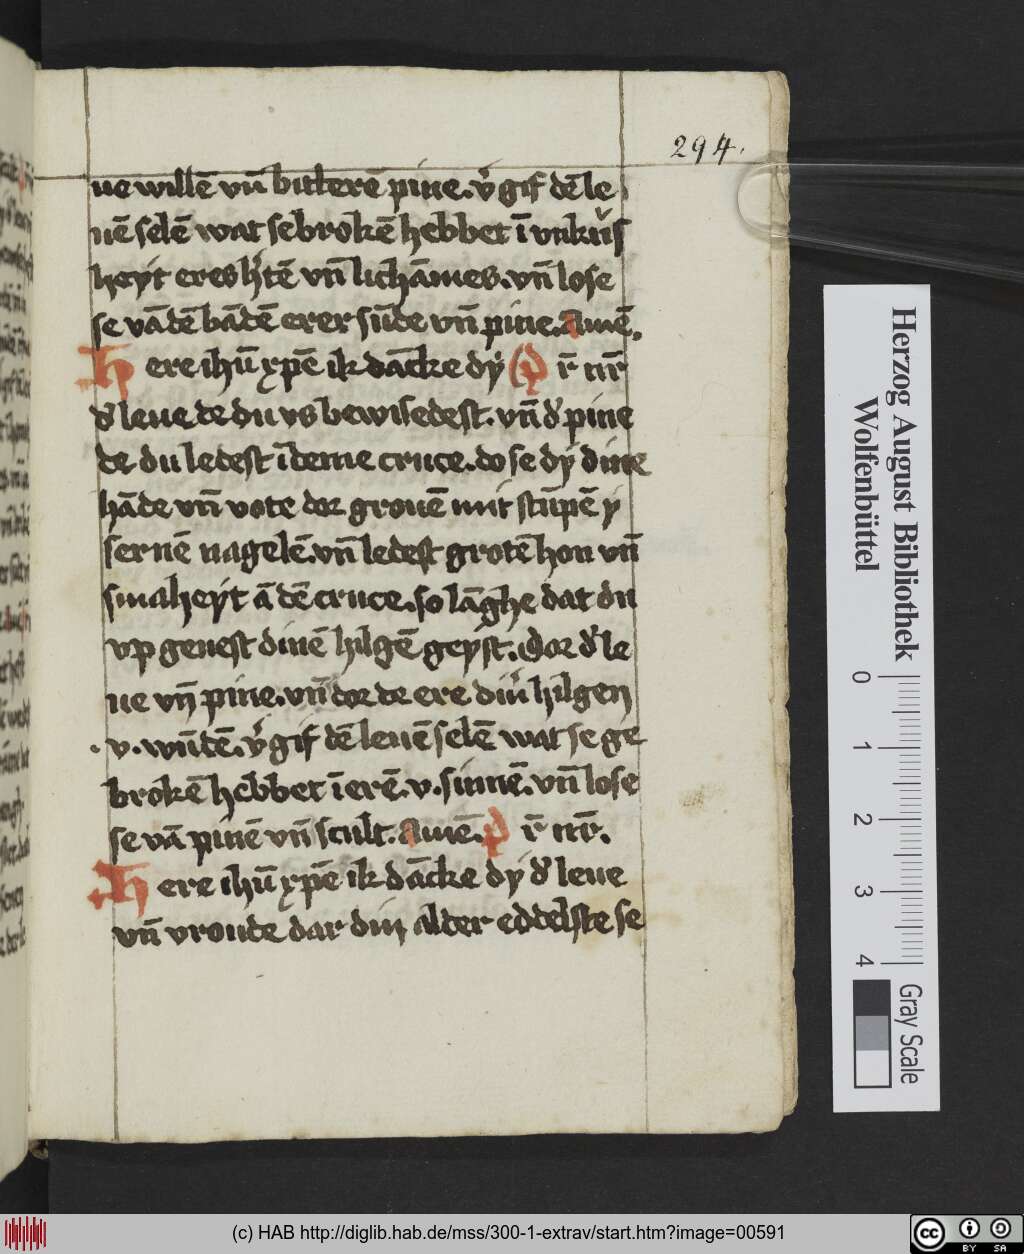 294.
ue willē vn̄ bitterē pine. v͛gif dē le
nē selē wat se brokē hebbet ī vnkus͛
heyt eres h͛tē vn̄ lichāmes. vn̄ lose
se vā dē bādē erer sūde vn̄ pine. amē.
Here ihū xp̄e ik dācke dy P r̄ nr̄
d͛ leue de du vs bewisedest. vn̄ d͛ pine
de du ledest ī deme cruce. do se dy dine
hāde vn̄ vote dor grouē mit stūpē y
sernē nagelē. vn̄ ledest grotē hon vn̄
smaheyt ā dē cruce. so lāghe dat du
vp geuest dinē hilgē geyst. Dor d͛ le
ue vn̄ pine. vn̄ dor de ere diu͛ hilgen
.v. wūdē. v͛gif dē leuē selē wat se ge
brokē hebbet ī erē .v. sinnē. vn̄ lose
se vā pinē vn̄ scult. amē. P r̄ nr̄.
Here ihū xp̄e ik dācke dy d͛ leue
vn̄ vroude dar din alder eddelste se
Herzog August Bibliothek
Wolfenbüttel
0 1 2 3 4
Gray Scale
(c) HAB http://diglib.hab.de/mss/300-1-extrav/start.htm?image=00591
cc BY SA